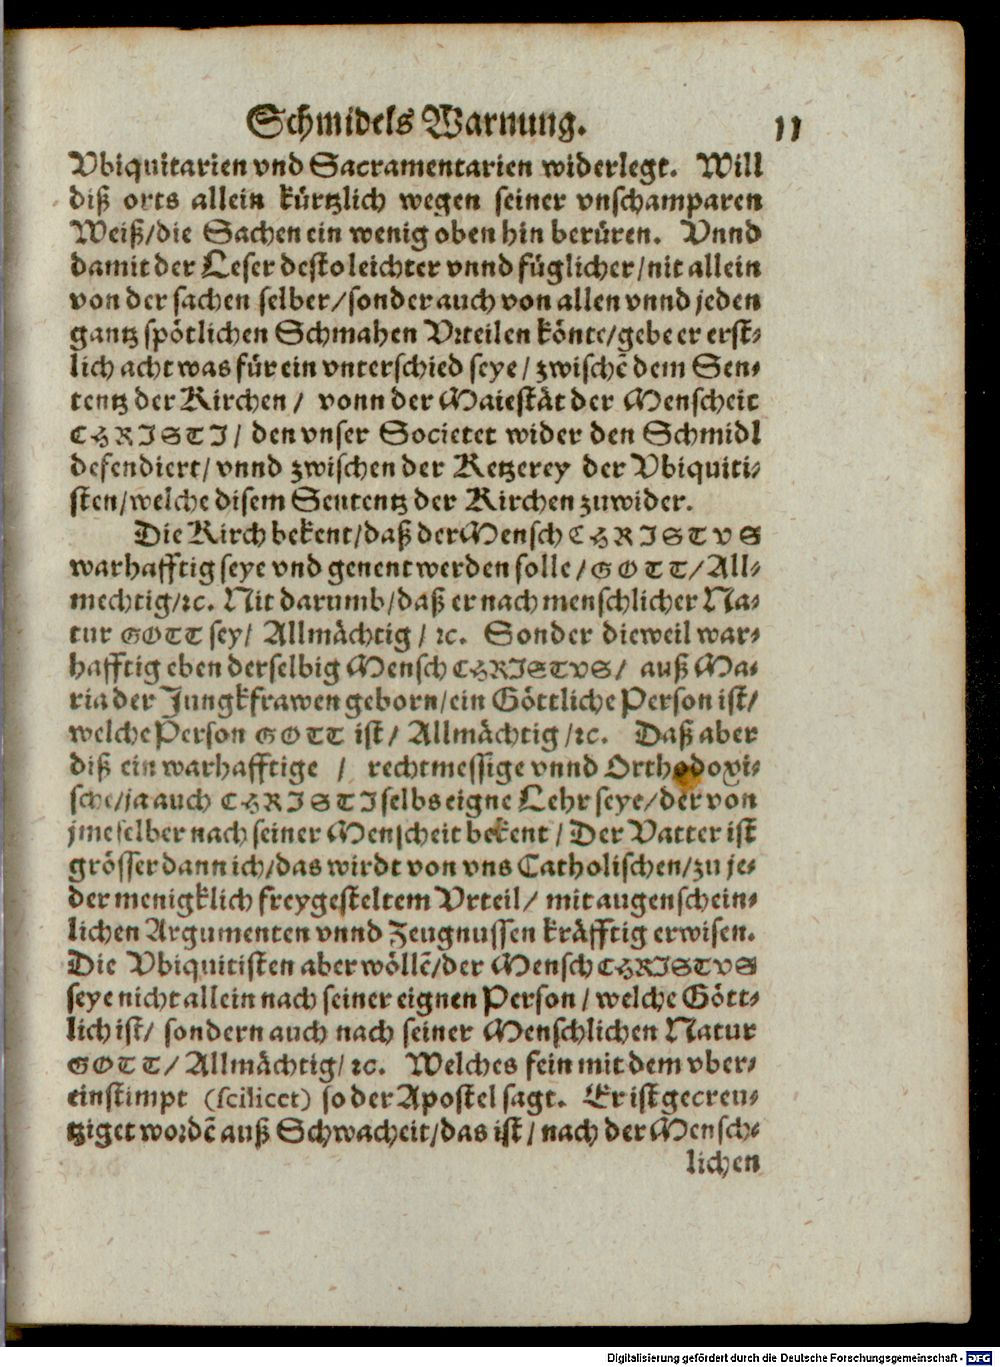 Schmidels Warnung. 11
Vbiquitarien vnd Sacramentarien widerlegt. Will
diß orts allein kürtzlich wegen seiner vnschamparen
Weiß/die Sachen ein wenig oben hin berüren. Vnnd
damit der Leser desto leichter vnnd füglicher/nit allein
von der sachen selber/sonder auch von allen vnnd jeden
gantz spötlichen Schmahen Vrteilen könte/gebe er erst⸗
lich acht was für ein vnterschied seye/ zwischẽ dem Sen⸗
tentz der Kirchen/ vonn der Maiestät der Menscheit
CHRISTI/ den vnser Societet wider den Schmidl
defendiert/ vnnd zwischen der Ketzerey der Vbiquiti⸗
sten/welche disem Sententz der Kirchen zuwider.
Die Kirch bekent/daß der Mensch CHRISTVS
warhafftig seye vnd genent werden solle/GOTT/All⸗
mechtig/ꝛc. Nit darumb/daß er nach menschlicher Na⸗
tur GOTT sey/ Allmächtig/ ꝛc. Sonder dieweil war⸗
hafftig eben derselbig Mensch CHRISTVS/ auß Ma⸗
ria der Jungkfrawen geborn/ein Göttliche Person ist/
welche Person GOTT ist/ Allmächtig/ꝛc. Daß aber
diß ein warhafftige / rechtmessige vnnd Orthodoxi⸗
sche/ja auch CHRISTI selbs eigne Lehr seye/der von
jme selber nach seiner Menscheit bekent/ Der Vatter ist
grösser dann ich/das wirdt von vns Catholischen/zu je⸗
der menigklich freygesteltem Vrteil/ mit augenschein⸗
lichen Argumenten vnnd Zeugnussen kräfftig erwisen.
Die Vbiquitisten aber wöllẽ/der Mensch CHRISTVS
seye nicht allein nach seiner eignen Person/ welche Gött⸗
lich ist/ sondern auch nach seiner Menschlichen Natur
GOTT/ Allmächtig/ ꝛc. Welches fein mit dem vber⸗
einstimpt (scilicet) so der Apostel sagt. Er ist gecreu⸗
tziget wordẽ auß Schwacheit/das ist/ nach der Mensch⸗
lichen
Digitalisierung gefördert durch die Deutsche Forschungsgemeinschaft - DFG